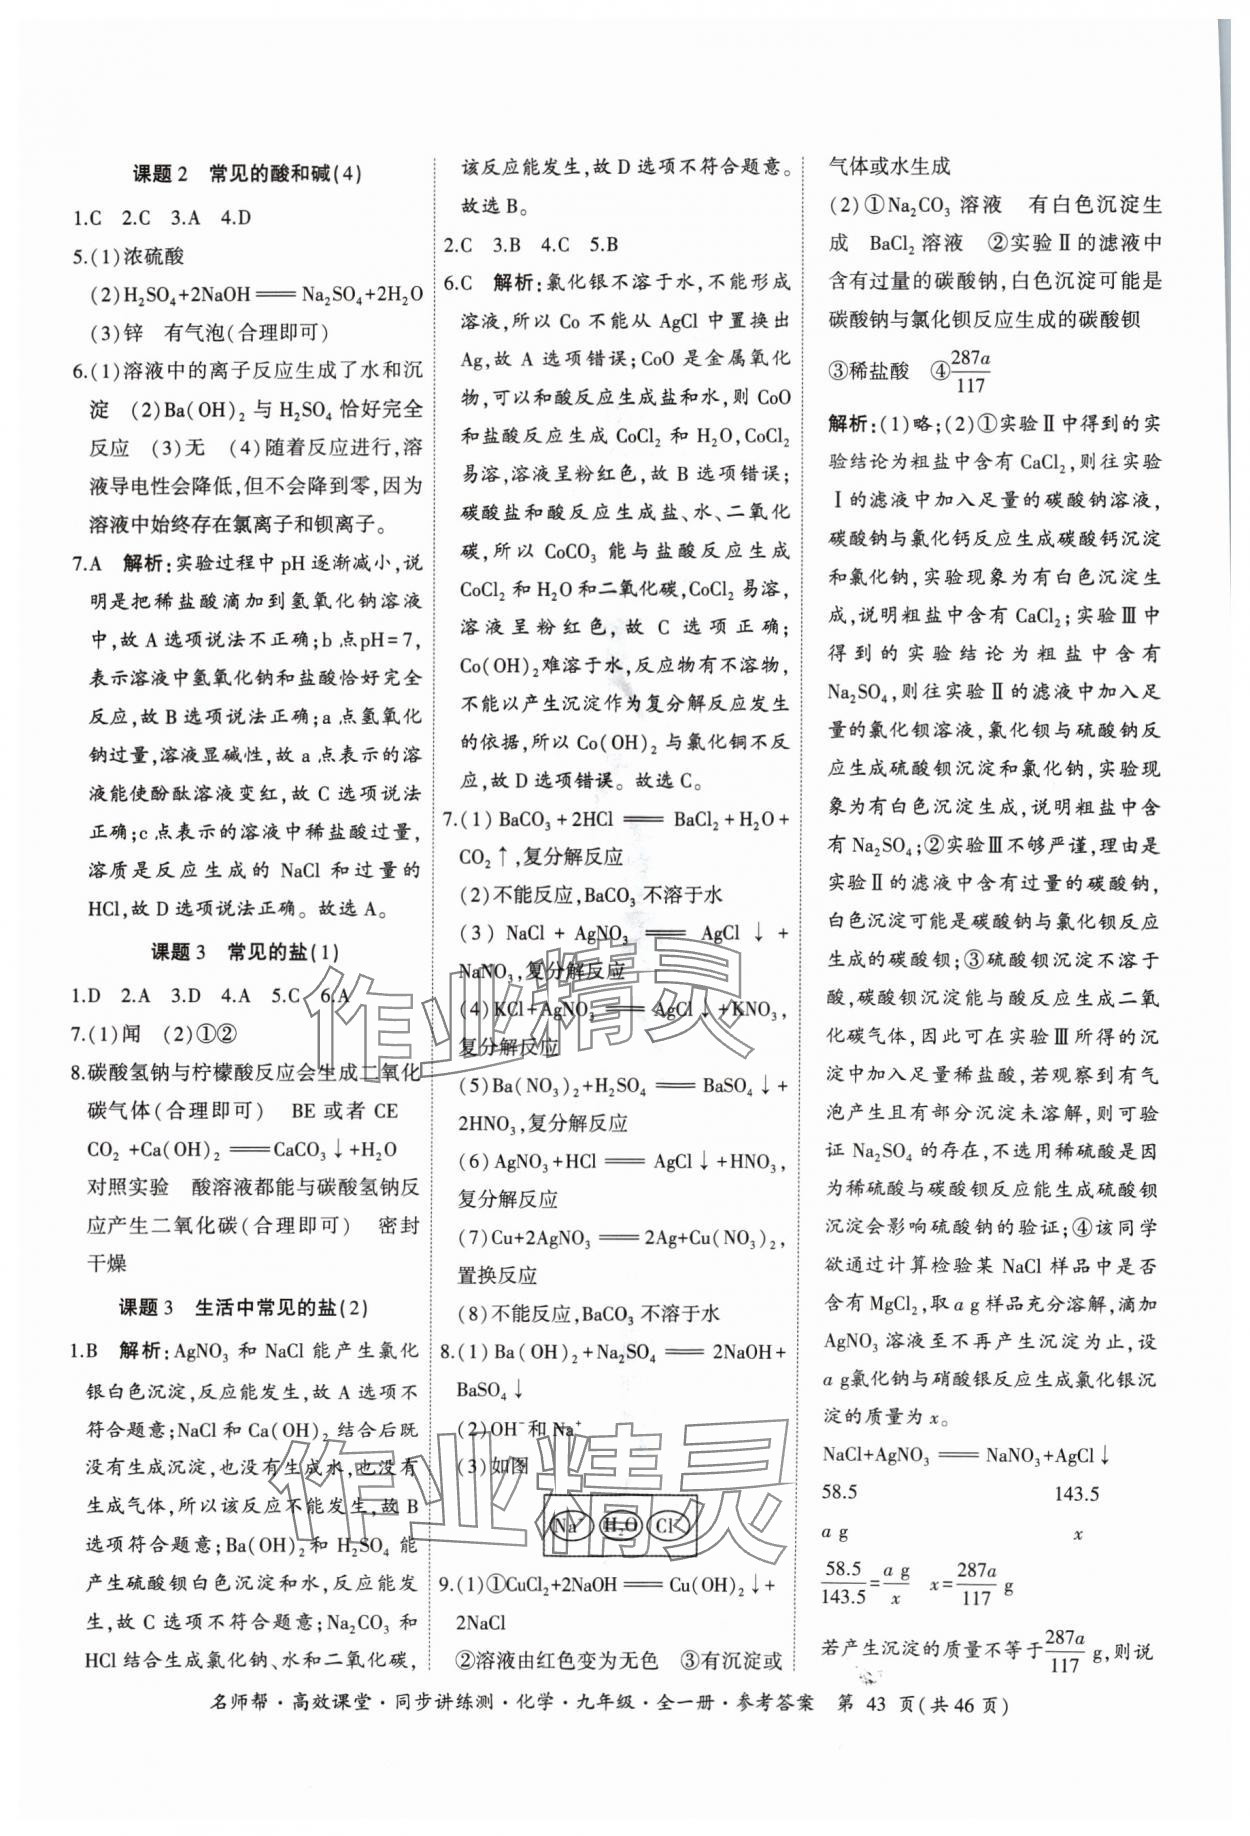 课题2 常见的酸和碱(4)
1.C 2.C 3.A 4.D
5.(1)浓硫酸
(2)H₂SO₄+2NaOH══Na₂SO₄+2H₂O
(3)锌 有气泡(合理即可)
6.(1)溶液中的离子反应生成了水和沉
淀 (2)Ba(OH)₂与H₂SO₄恰好完全
反应 (3)无 (4)随着反应进行,溶
液导电性会降低,但不会降到零,因为
溶液中始终存在氯离子和钡离子。
7.A 解析:实验过程中pH逐渐减小,说
明是把稀盐酸滴加到氢氧化钠溶液
中,故A选项说法不正确;b点pH=7,
表示溶液中氢氧化钠和盐酸恰好完全
反应,故B选项说法正确;a点氢氧化
钠过量,溶液显碱性,故a点表示的溶
液能使酚酞溶液变红,故C选项说法
正确;c点表示的溶液中稀盐酸过量,
溶质是反应生成的NaCl和过量的
HCl,故D选项说法正确。故选A。
课题3 常见的盐(1)
1.D 2.A 3.D 4.A 5.C 6.A
7.(1)闻 (2)①②
8.碳酸氢钠与柠檬酸反应会生成二氧化
碳气体(合理即可) BE或者CE
CO₂+Ca(OH)₂══CaCO₃↓+H₂O
对照实验 酸溶液都能与碳酸氢钠反
应产生二氧化碳(合理即可) 密封
干燥
课题3 生活中常见的盐(2)
1.B 解析:AgNO₃和NaCl能产生氯化
银白色沉淀,反应能发生,故A选项不
符合题意;NaCl和Ca(OH)₂结合后既
没有生成沉淀,也没有生成水,也没有
生成气体,所以该反应不能发生,故B
选项符合题意;Ba(OH)₂和H₂SO₄能
产生硫酸钡白色沉淀和水,反应能发
生,故C选项不符合题意;Na₂CO₃和
HCl结合生成氯化钠、水和二氧化碳,
该反应能发生,故D选项不符合题意。
故选B。
2.C 3.B 4.C 5.B
6.C 解析:氯化银不溶于水,不能形成
溶液,所以Co不能从AgCl中置换出
Ag,故A选项错误;CoO是金属氧化
物,可以和酸反应生成盐和水,则CoO
和盐酸反应生成CoCl₂和H₂O,CoCl₂
易溶,溶液呈粉红色,故B选项错误;
碳酸盐和酸反应生成盐、水、二氧化
碳,所以CoCO₃能与盐酸反应生成
CoCl₂和H₂O和二氧化碳,CoCl₂易溶,
溶液呈粉红色,故C选项正确;
Co(OH)₂难溶于水,反应物有不溶物,
不能以产生沉淀作为复分解反应发生
的依据,所以Co(OH)₂与氯化铜不反
应,故D选项错误。故选C。
7.(1)BaCO₃+2HCl══BaCl₂+H₂O+
CO₂↑,复分解反应
(2)不能反应,BaCO₃不溶于水
(3)NaCl+AgNO₃══AgCl↓+
NaNO₃,复分解反应
(4)KCl+AgNO₃══AgCl↓+KNO₃,
复分解反应
(5)Ba(NO₃)₂+H₂SO₄══BaSO₄↓+
2HNO₃,复分解反应
(6)AgNO₃+HCl══AgCl↓+HNO₃,
复分解反应
(7)Cu+2AgNO₃══2Ag+Cu(NO₃)₂,
置换反应
(8)不能反应,BaCO₃不溶于水
8.(1)Ba(OH)₂+Na₂SO₄══2NaOH+
BaSO₄↓
(2)OH⁻和Na⁺
(3)如图
Na⁺ H₂O Cl⁻
9.(1)①CuCl₂+2NaOH══Cu(OH)₂↓+
2NaCl
②溶液由红色变为无色 ③有沉淀或
气体或水生成
(2)①Na₂CO₃溶液 有白色沉淀生
成 BaCl₂溶液 ②实验Ⅱ的滤液中
含有过量的碳酸钠,白色沉淀可能是
碳酸钠与氯化钡反应生成的碳酸钡
③稀盐酸 ④287a/117
解析:(1)略;(2)①实验Ⅱ中得到的实
验结论为粗盐中含有CaCl₂,则往实验
Ⅰ的滤液中加入足量的碳酸钠溶液,
碳酸钠与氯化钙反应生成碳酸钙沉淀
和氯化钠,实验现象为有白色沉淀生
成,说明粗盐中含有CaCl₂;实验Ⅲ中
得到的实验结论为粗盐中含有
Na₂SO₄,则往实验Ⅱ的滤液中加入足
量的氯化钡溶液,氯化钡与硫酸钠反
应生成硫酸钡沉淀和氯化钠,实验现
象为有白色沉淀生成,说明粗盐中含
有Na₂SO₄;②实验Ⅲ不够严谨,理由是
实验Ⅱ的滤液中含有过量的碳酸钠,
白色沉淀可能是碳酸钠与氯化钡反应
生成的碳酸钡;③硫酸钡沉淀不溶于
酸,碳酸钡沉淀能与酸反应生成二氧
化碳气体,因此可在实验Ⅲ所得的沉
淀中加入足量稀盐酸,若观察到有气
泡产生且有部分沉淀未溶解,则可验
证Na₂SO₄的存在,不选用稀硫酸是因
为稀硫酸与碳酸钡反应能生成硫酸钡
沉淀会影响硫酸钠的验证;④该同学
欲通过计算检验某NaCl样品中是否
含有MgCl₂,取a g样品充分溶解,滴加
AgNO₃溶液至不再产生沉淀为止,设
a g氯化钠与硝酸银反应生成氯化银沉
淀的质量为x。
NaCl+AgNO₃══NaNO₃+AgCl↓
58.5 143.5
a g x
58.5/143.5=a g/x x=287a/117 g
若产生沉淀的质量不等于287a/117 g,则说
名师帮·高效课堂·同步讲练测·化学·九年级·全一册·参考答案 第 43 页(共46页)
作业精灵
作业精灵